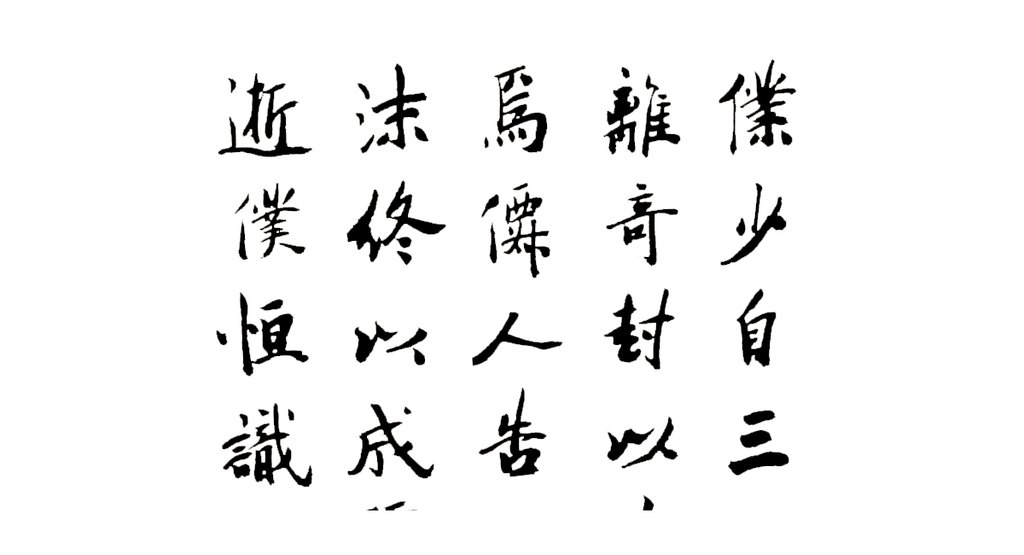 僕少自三
離奇封以
焉儛人告
沫終以成
逝僕恒識